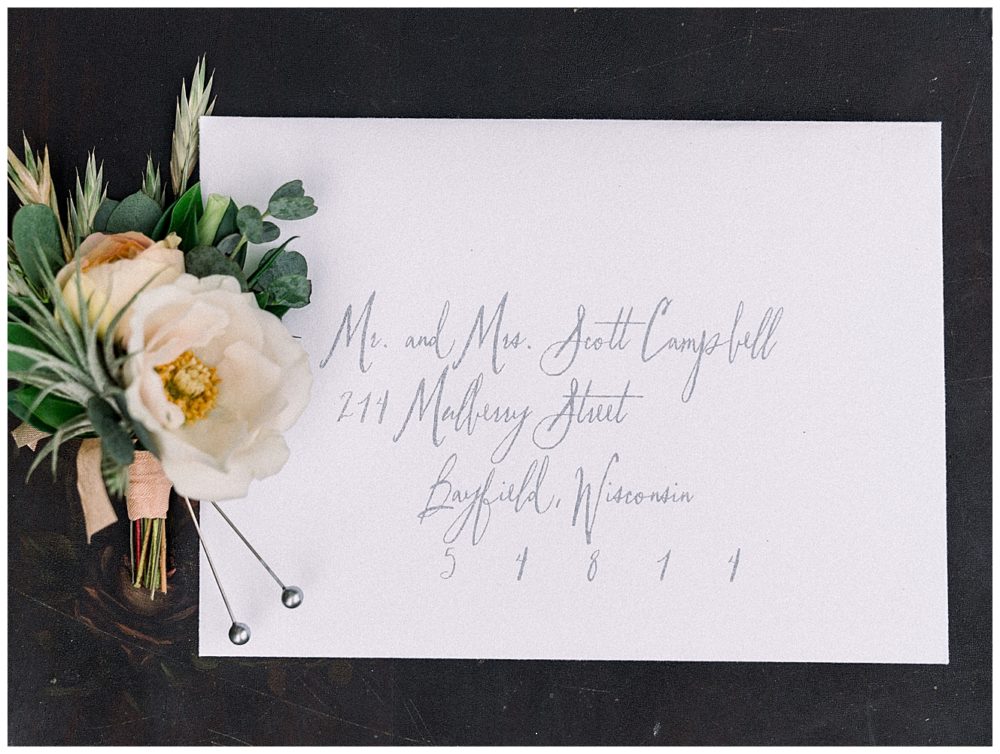 Mr. and Mrs. Scott Campbell
214 Mulberry Street
Bayfield, Wisconsin
5 4 8 1 4